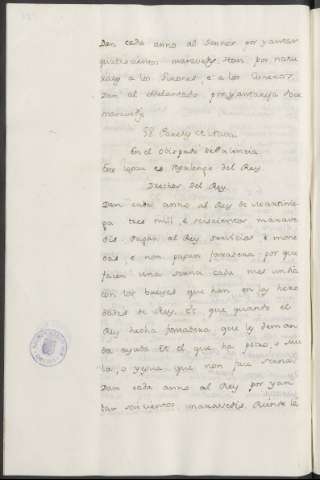 Dan cada anno al Sennor por yantar
quatrocientos maravedis. Han por natu
rales a los Girones e a los Cisneros
Dan al Adelantado por yantareja doce
maravedis
98 Paredes de Nava
En el Obispado de Palencia
Este logar es Realengo del Rey
Derechos del Rey
Dan cada anno al Rey de Martinie
ga tres mill, e seiscientos marave
dis. Pagan al Rey servicios e mone
das e non pagan fonsadera: por que
facen una serna cada mes un dia
con los bueyes que han en las here
dades de Rey. Et que quando el
Rey hecha fonsadera, que le deman
da ayuda. Et el que ha potro, o mu
la, o yegua que non faca serna
Dan cada anno al Rey por yan
tar seiscientos maravedis. Rinde la